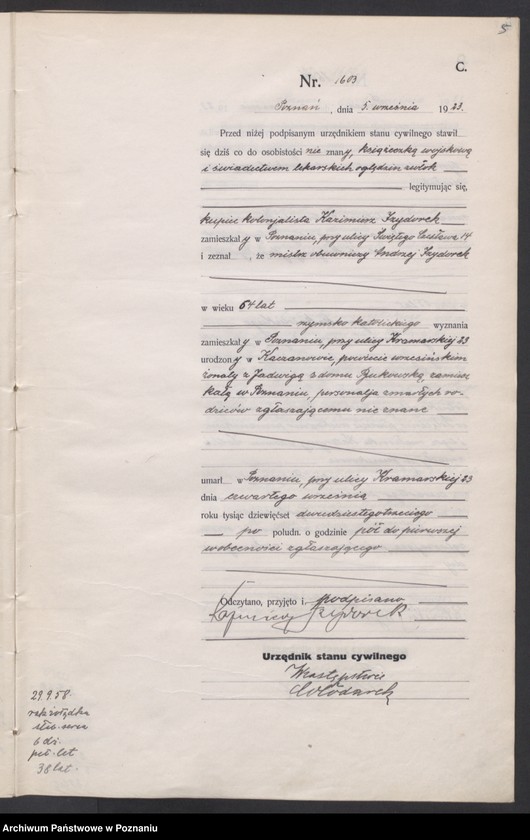 5
C.
Nr. 1603
Poznań, dnia 5. września 1923.
Przed niżej podpisanym urzędnikiem stanu cywilnego stawił
się dziś co do osobistości nie znany, książeczką wojskową
i świadectwem lekarskich oględzin zwłok
legitymując się,
kupiec kolonjalista Kazimierz Izydorek
zamieszkały w Poznaniu, przy ulicy Świętego Czesława 14
i zeznał, że mistrz obuwniczy Andrzej Izydorek
w wieku 64 lat
rzymsko katolickiego wyznania
zamieszkały w Poznaniu, przy ulicy Kramarskiej 23
urodzony w Kaczanowie, powiecie wrzesińskim
żonaty z Jadwigą z domu Bukowską zamiesz
kałą w Poznaniu, personalja zmarłych ro-
dziców zgłaszającemu nie znane
umarł w Poznaniu, przy ulicy Kramarskiej 23
dnia czwartego września
roku tysiąc dziewięćset dwudziestegotrzeciego
po połudn. o godzinie pół do pierwszej
w obecności zgłaszającego
Odczytano, przyjęto i podpisano
Kazimierz Izydorek
Urzędnik stanu cywilnego
W zastępstwie
Włodarek
29 9 58.
rak żołądka
6 dz.
38 lat.
Archiwum Państwowe w Poznaniu